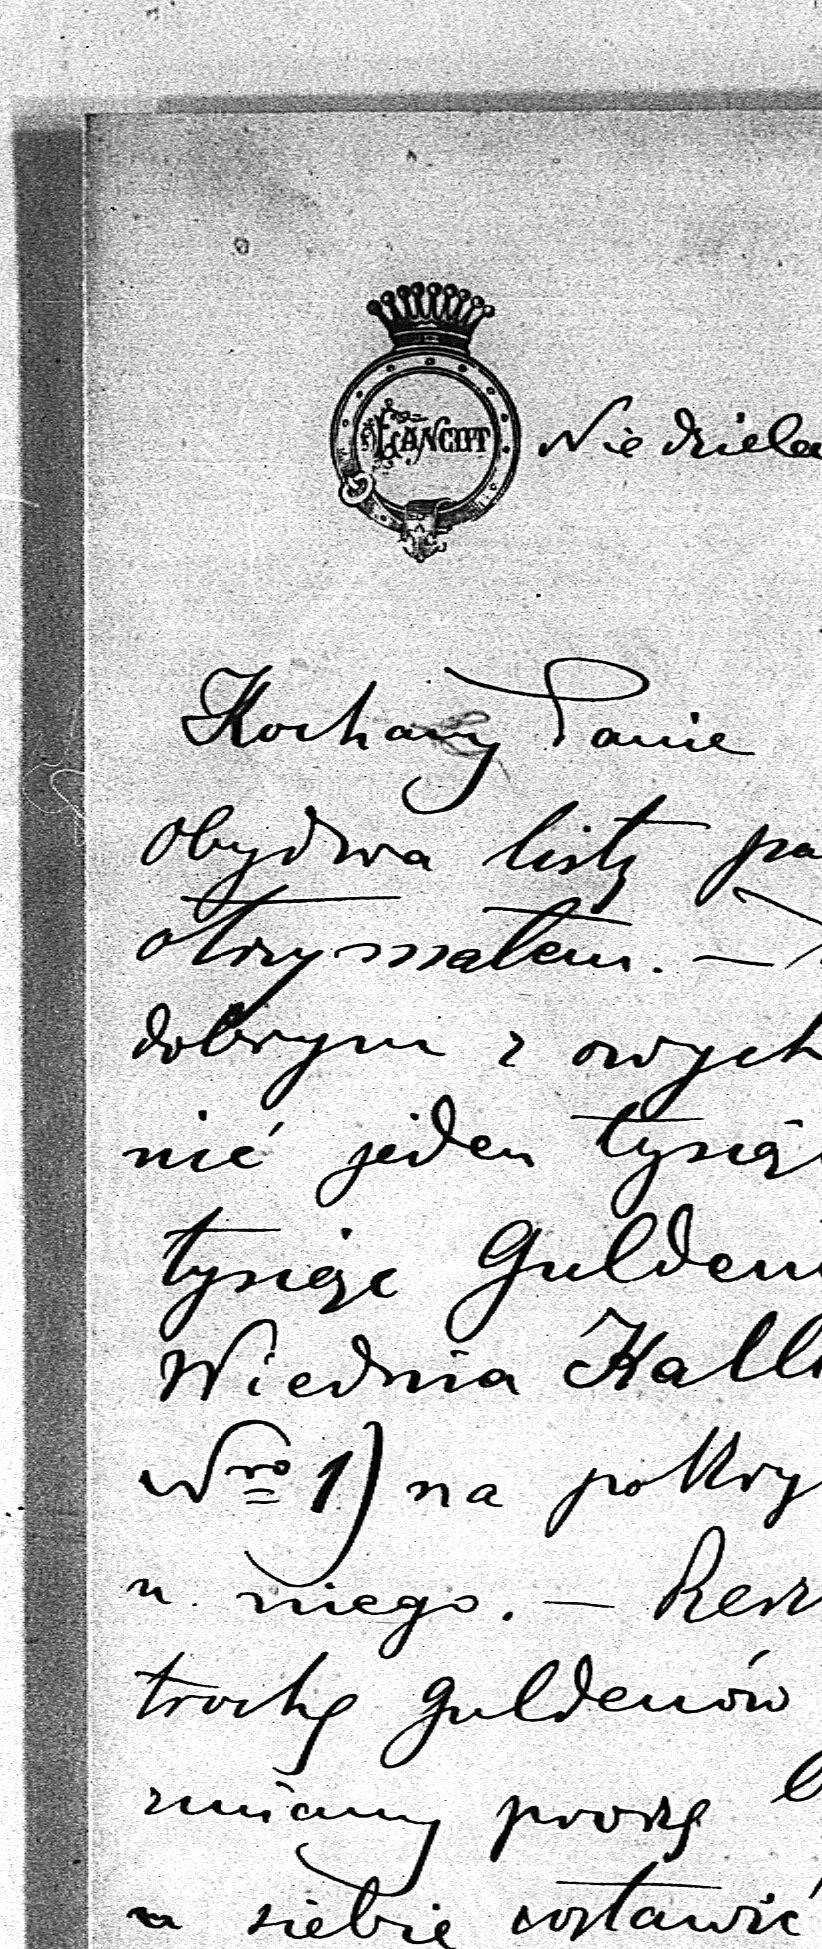 ŁAŃCUT
Niedziela
Kochany Panie
obydwa listy pa
otrzymałem. —
dobrym z owych
nić jeden tysiąc
tysiące Guldenó
Wiednia Kall
Nro 1) na pokry
u niego. — Resz
trochę guldenów
zmiany proszę
u siebie zostawić